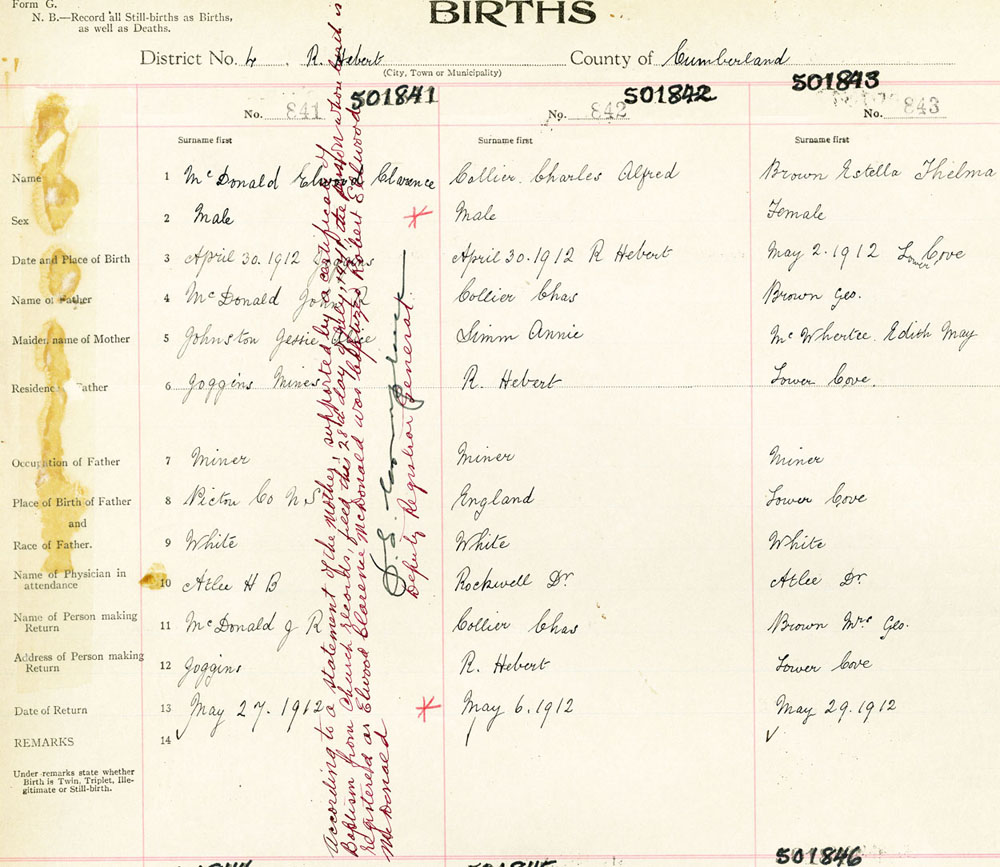 Form G.
N. B.—Record all Still-births as Births,
as well as Deaths.
BIRTHS
District No. 4 . R. Hebert County of Cumberland
(City, Town or Municipality)
501841 501842 501843
No. 841 No. 842 No. 843
Surname first Surname first Surname first
Name 1 McDonald Elwood Clarence Collier Charles Alfred Brown Estella Thelma
Sex 2 Male Male Female
Date and Place of Birth 3 April 30. 1912 April 30. 1912 R Hebert May 2. 1912 Lower Cove
Name of Father 4 McDonald John R Collier Chas Brown Geo.
Maiden name of Mother 5 Johnston Jessie Simm Annie Mc Whertee. Edith May
Residence Father 6 Joggins Mines R. Hebert Lower Cove.
Occupation of Father 7 Miner Miner Miner
Place of Birth of Father 8 Pictou Co N S England Lower Cove
and
Race of Father. 9 White White White
Name of Physician in
attendance 10 Atlee H B Rockwell Dr. Atlee Dr.
Name of Person making
Return 11 McDonald J R Collier Chas Brown Mrs Geo.
Address of Person making
Return 12 Joggins R. Hebert Lower Cove
Date of Return 13 May 27. 1912 May 6. 1912 May 29. 1912
REMARKS 14
Under remarks state whether
Birth is Twin, Triplet, Ille-
gitimate or Still-birth.
According to a statement of the mother, supported by a certificate of
Baptism from Church records, filed the 28th day of July, 1941, the person whose birth is
registered as Elwood Clarence McDonald was baptized Robert Ellwood
McDonald
Deputy Registrar General.
501846